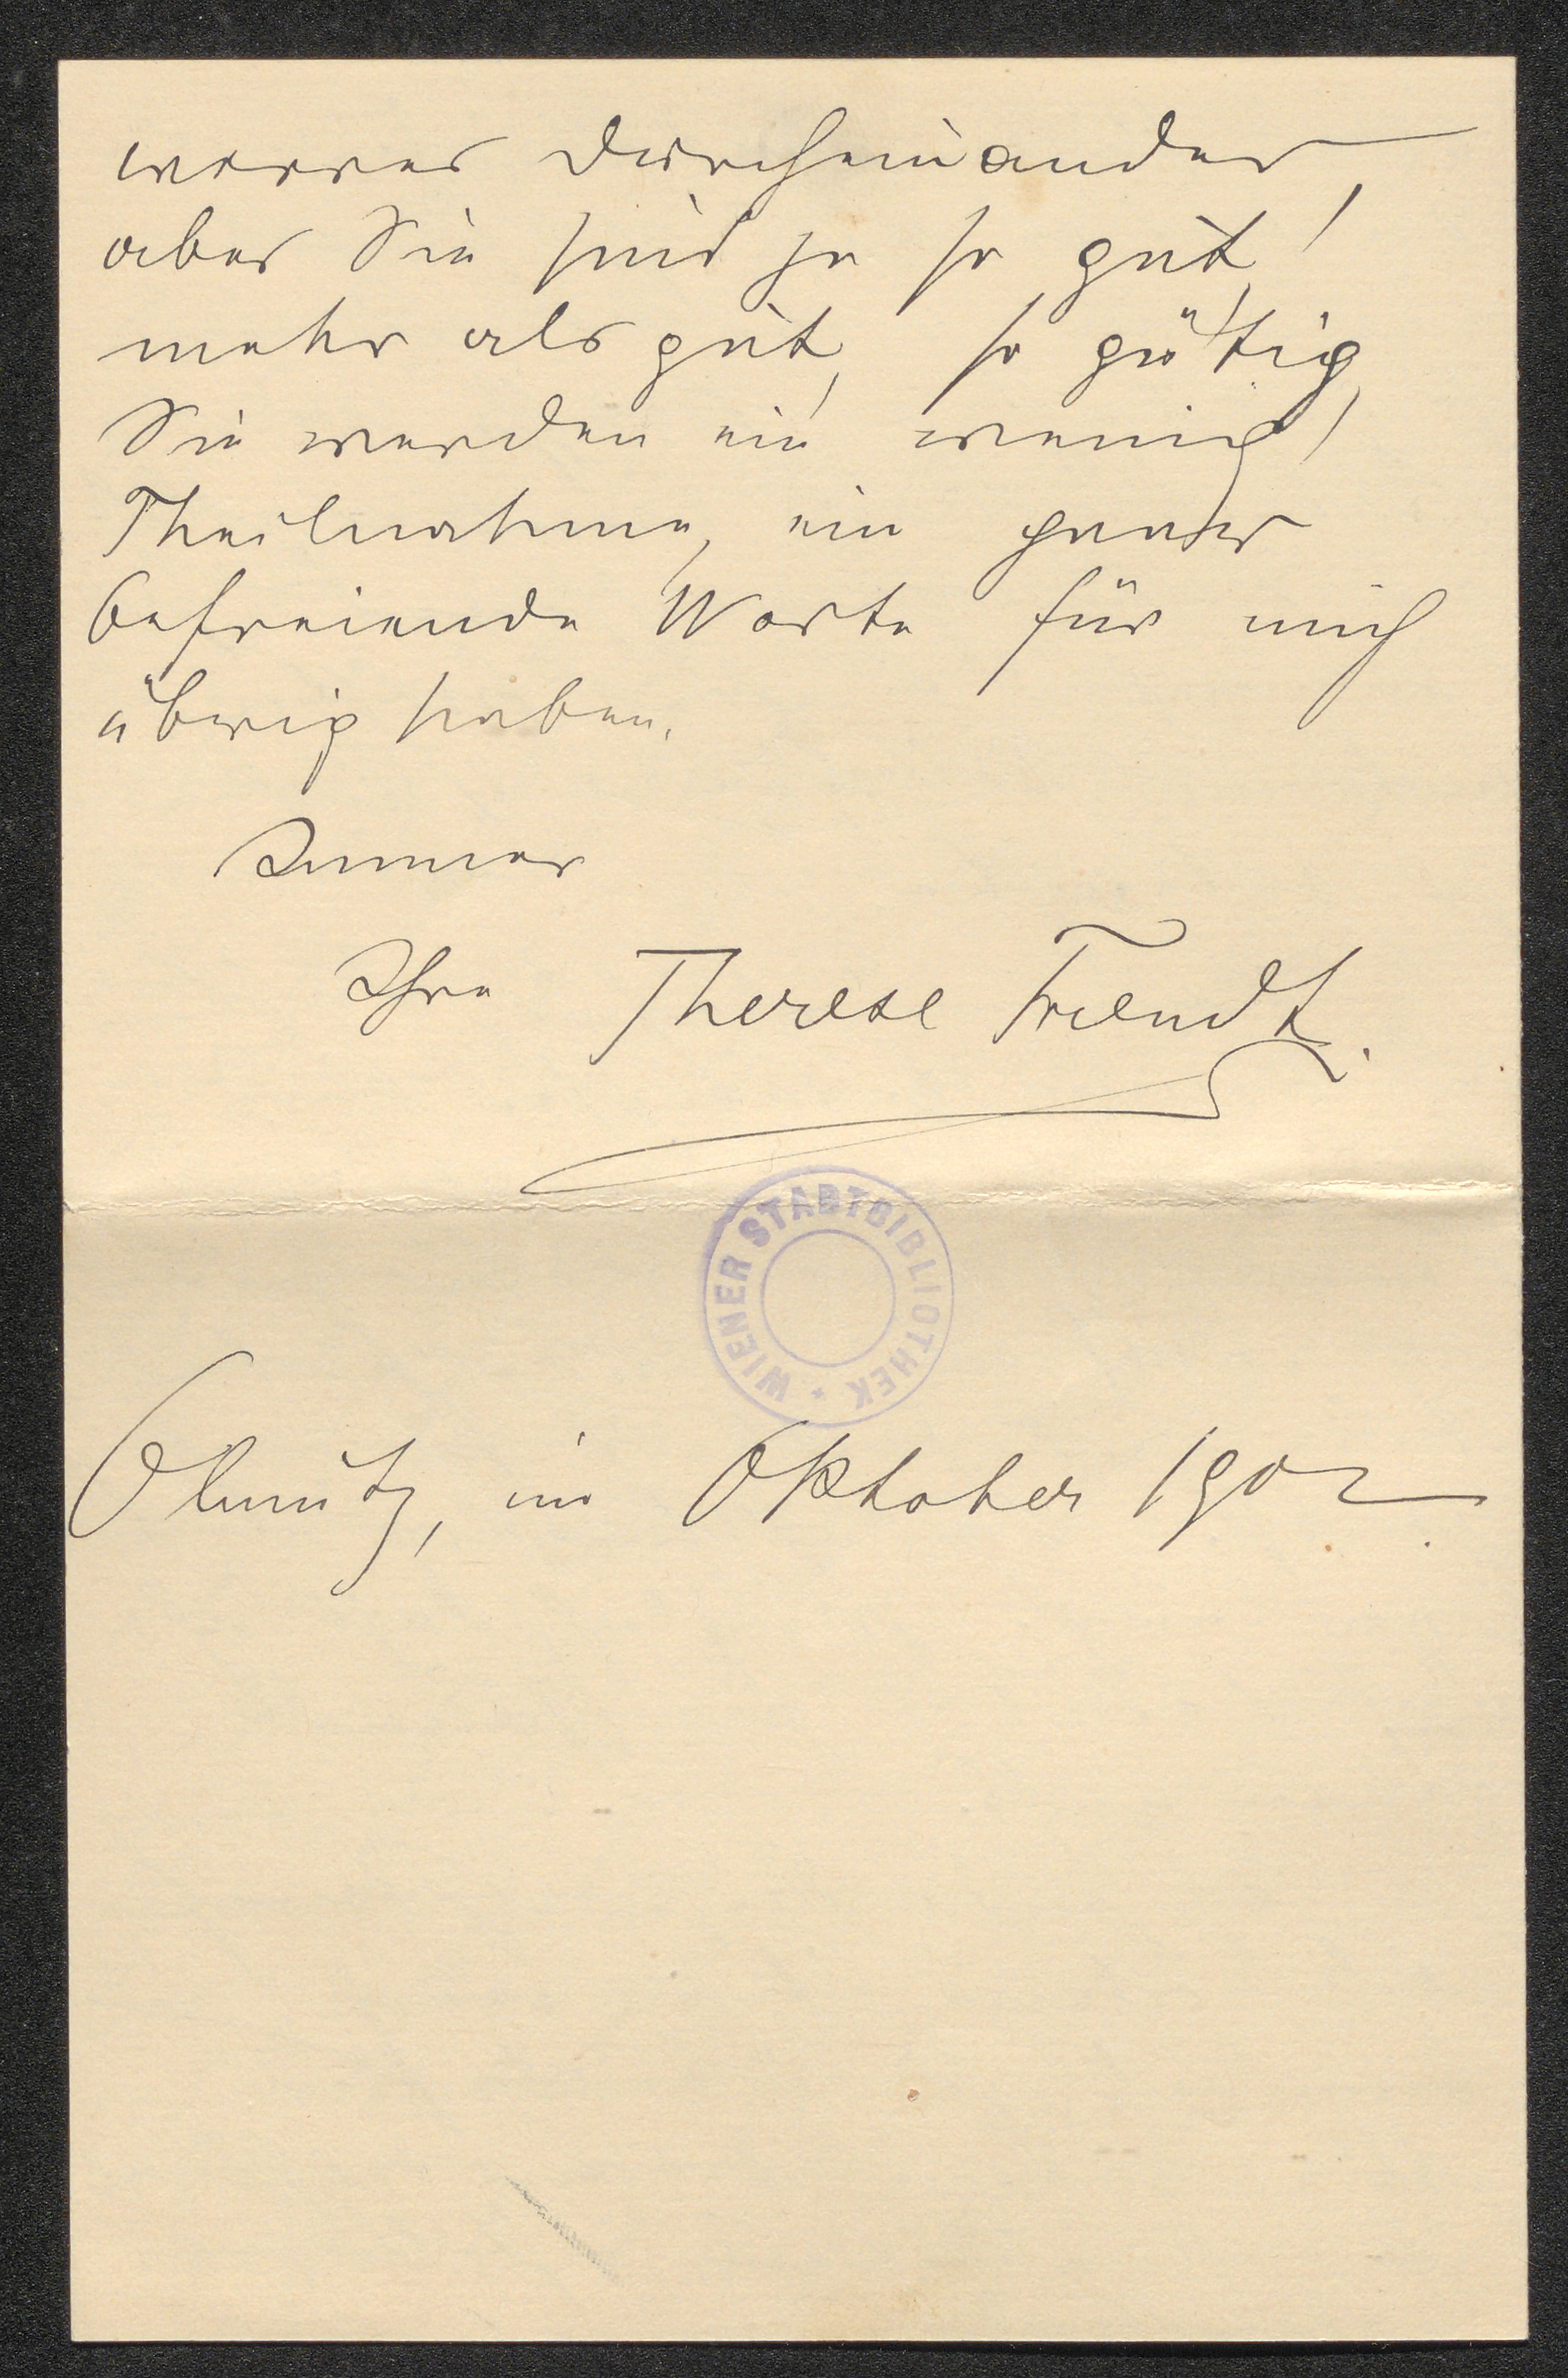 worres durcheinander,
aber Sie sind ja so gut,
mehr als gut, so gütig,
Sie werden ein wenig
Theilnahme, ein paar
befreiende Worte für mich
übrig haben.
Immer
Ihre Therese Friendt.
WIENER STADTBIBLIOTHEK *
Olmütz, im Oktober 1902